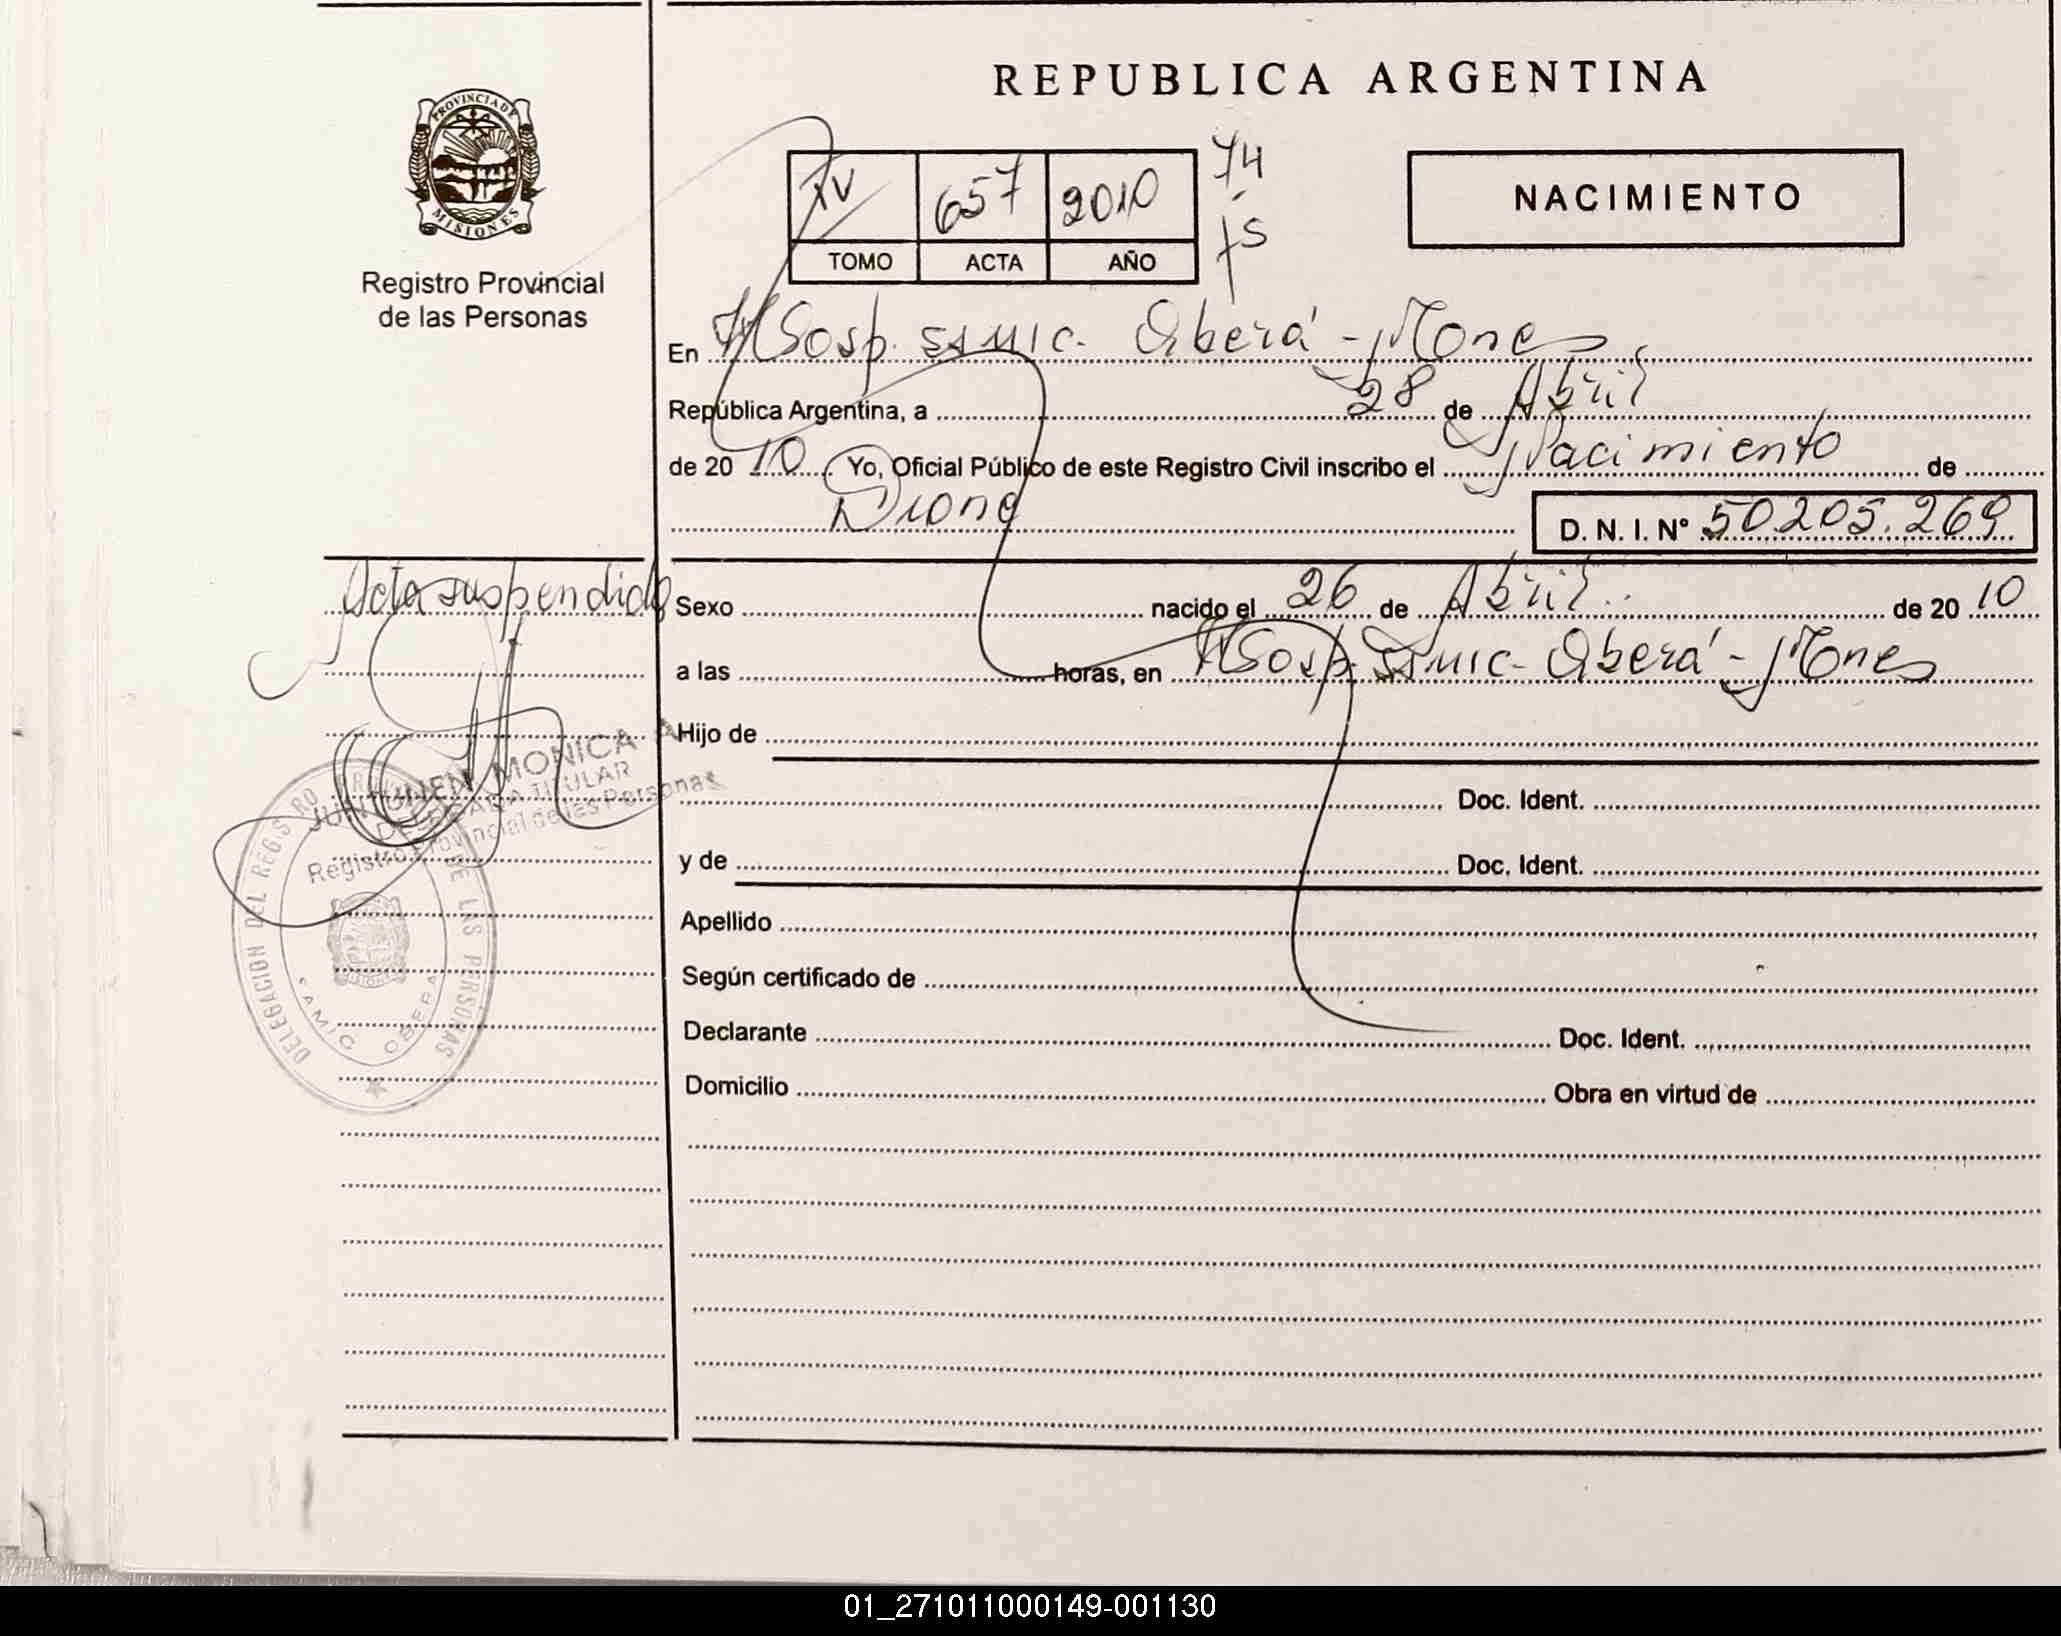 REPUBLICA ARGENTINA
PROVINCIA DE
MISIONES
Registro Provincial
de las Personas
XV 657 2010
TOMO ACTA AÑO
74
75
NACIMIENTO
En Hosp. SAMIC. Oberá - Mones
República Argentina, a 28 de Abril
de 20 10. Yo, Oficial Público de este Registro Civil inscribo el Nacimiento de
D. N. I. Nº 50.205.269
Acta suspendida
Sexo nacido el 26 de Abril de 20 10
a las horas, en Hosp. SAMIC - Oberá - Mones
Hijo de
Doc. Ident.
y de Doc. Ident.
Apellido
Según certificado de
Declarante Doc. Ident.
Domicilio Obra en virtud de
MONICA
DELEGADA TITULAR
Registro Provincial de las Personas
DELEGACION DEL REGISTRO PROVINCIAL DE LAS PERSONAS
SAMIC OBERA
01_271011000149-001130